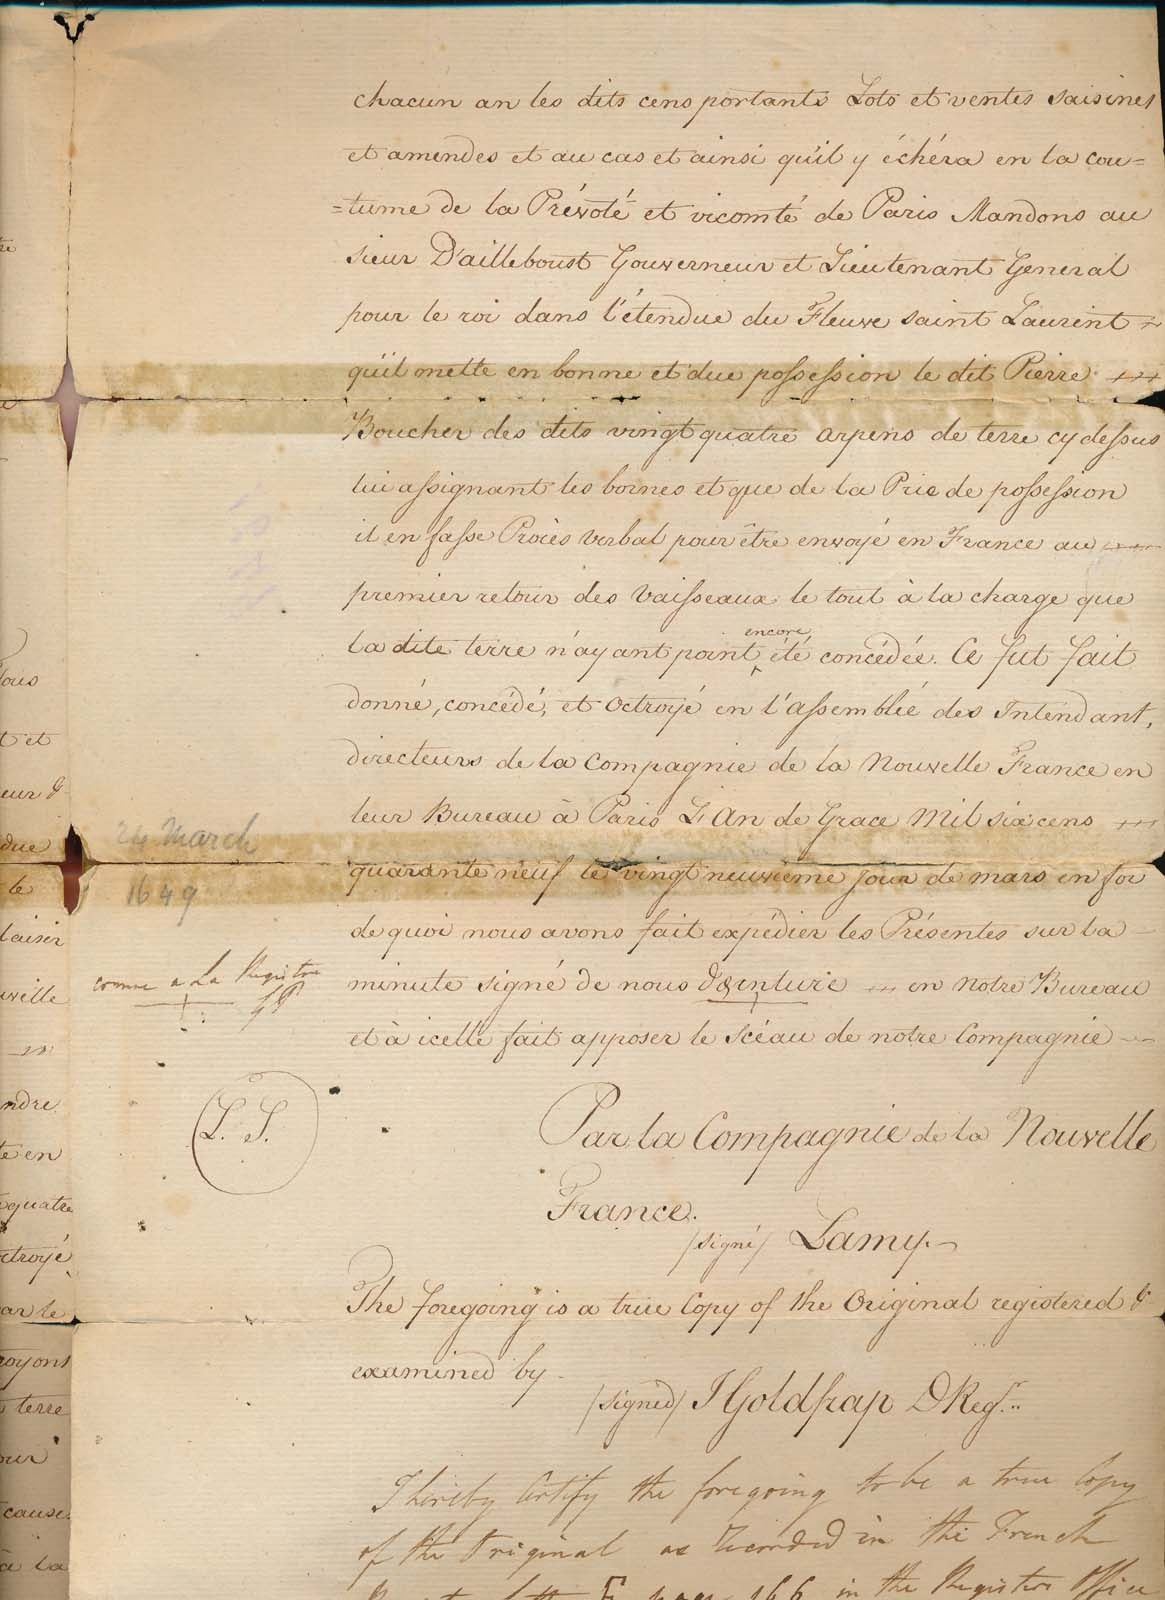 chacun an les dits cens portants Lots et ventes saisines
et amendes et au cas et ainsi qu'il y échéra en la cou=
=tume de la Prévoté et vicomté de Paris Mandons au
sieur D'ailleboust Gouverneur et Lieutenant General
pour le roi dans l'étendue du Fleuve saint Laurent
qu'il mette en bonne et due possession le dit Pierre
Boucher des dits vingt quatre arpens de terre cy dessus
lui assignant les bornes et que de la Prise de possession
il en fasse Procès verbal pour être envoyé en France au
premier retour des Vaisseaux le tout à la charge que
la dite terre n'ayant point encore été concédée. Ce fut fait
donné, concédé, et octroyé en l'assemblée des Intendant,
directeurs de la Compagnie de la Nouvelle France en
leur Bureau à Paris L'An de Grace Mil six cens
quarante neuf le vingt neuvieme jour de mars en foi
de quoi nous avons fait expédier les Présentes sur la
minute signé de nous en notre Bureau
et à icelle fait apposer le Scéau de notre Compagnie
24 March
1649
comme a La Registre
L. S.
Par la Compagnie de la Nouvelle
France.
/signé/ Lamy.
The foregoing is a true Copy of the Original registered &
examined by
/signed/ J Goldfrap D Regr.
I hereby Certify the foregoing to be a true Copy
of the Original as Recorded in the French
page 166 in the Registers Office
ous
t et
eur &
due
le
laisir
uvelle
ndre
te en
quatre
ctroyé
ar le
royons
terre
our
cause
à la